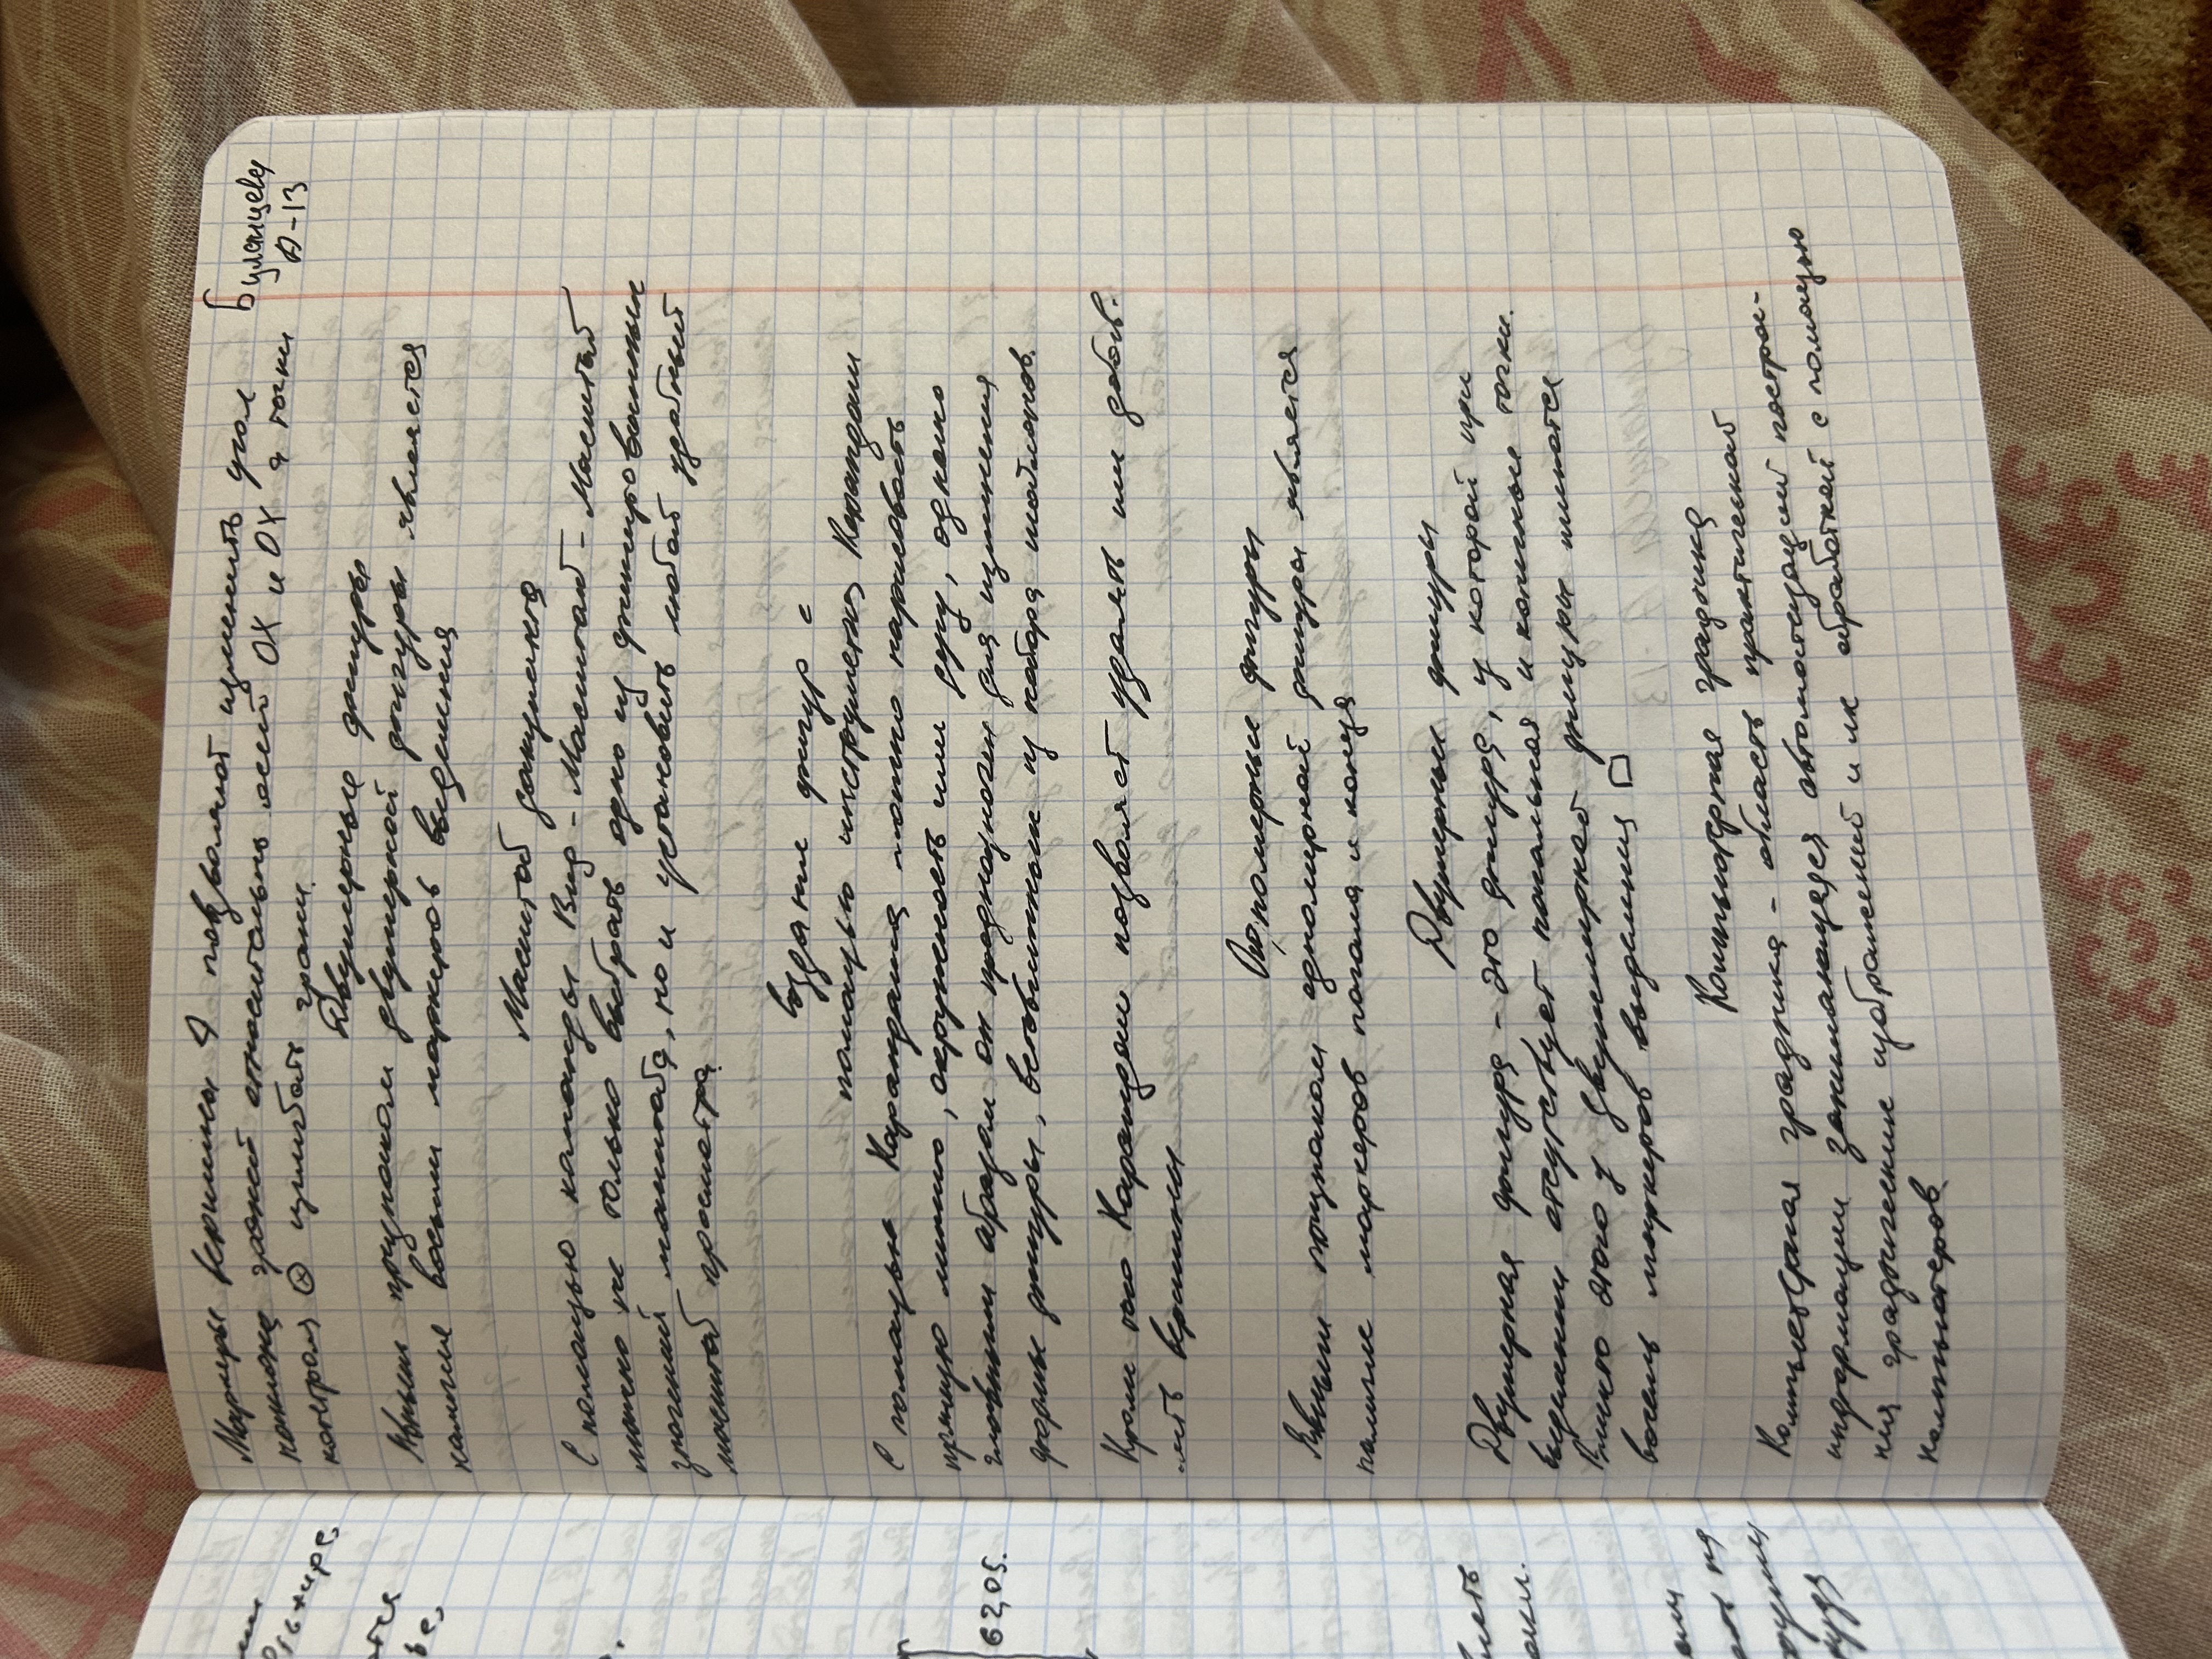 Маркеры вершины позволяют изменить угол
наклона граней относительно осей OX и OY, а точки
контроля ⊗ изгибать грани.
Двумерные фигуры
Явным признаком двумерной фигуры является
наличие восьми маркеров выделения
Масштаб документа
С помощью команды Вид - Масштаб - Масштаб
можно не только выбрать одно из фиксированных
значений масштаба, но и установить любой удобный
масштаб просмотра.
Создание фигур с
помощью инструмента Карандаш
С помощью Карандаша можно нарисовать
прямую линию, окружность или дугу, однако
главным образом он предназначен для изменения
формы фигуры, вставленной из набора шаблонов.
Кроме того Карандаш позволяет удалять или добав.
-лять вершины
Одномерные фигуры
Явным признаком одномерной фигуры является
наличие маркеров начала и конца
Двумерные фигуры
Двумерная фигура - это фигура, у которой при
выделении отсутствует начальная и конечная точки.
Вместо этого у двумерной фигуры имеются
восемь маркеров выделения □
Компьютерная графика
Компьютерная графика - область практической
информации занимающаяся автоматизацией построе-
ния графические изображений и их обработкой с помощью
компьютеров.
Буланцева
А-13
62,05.